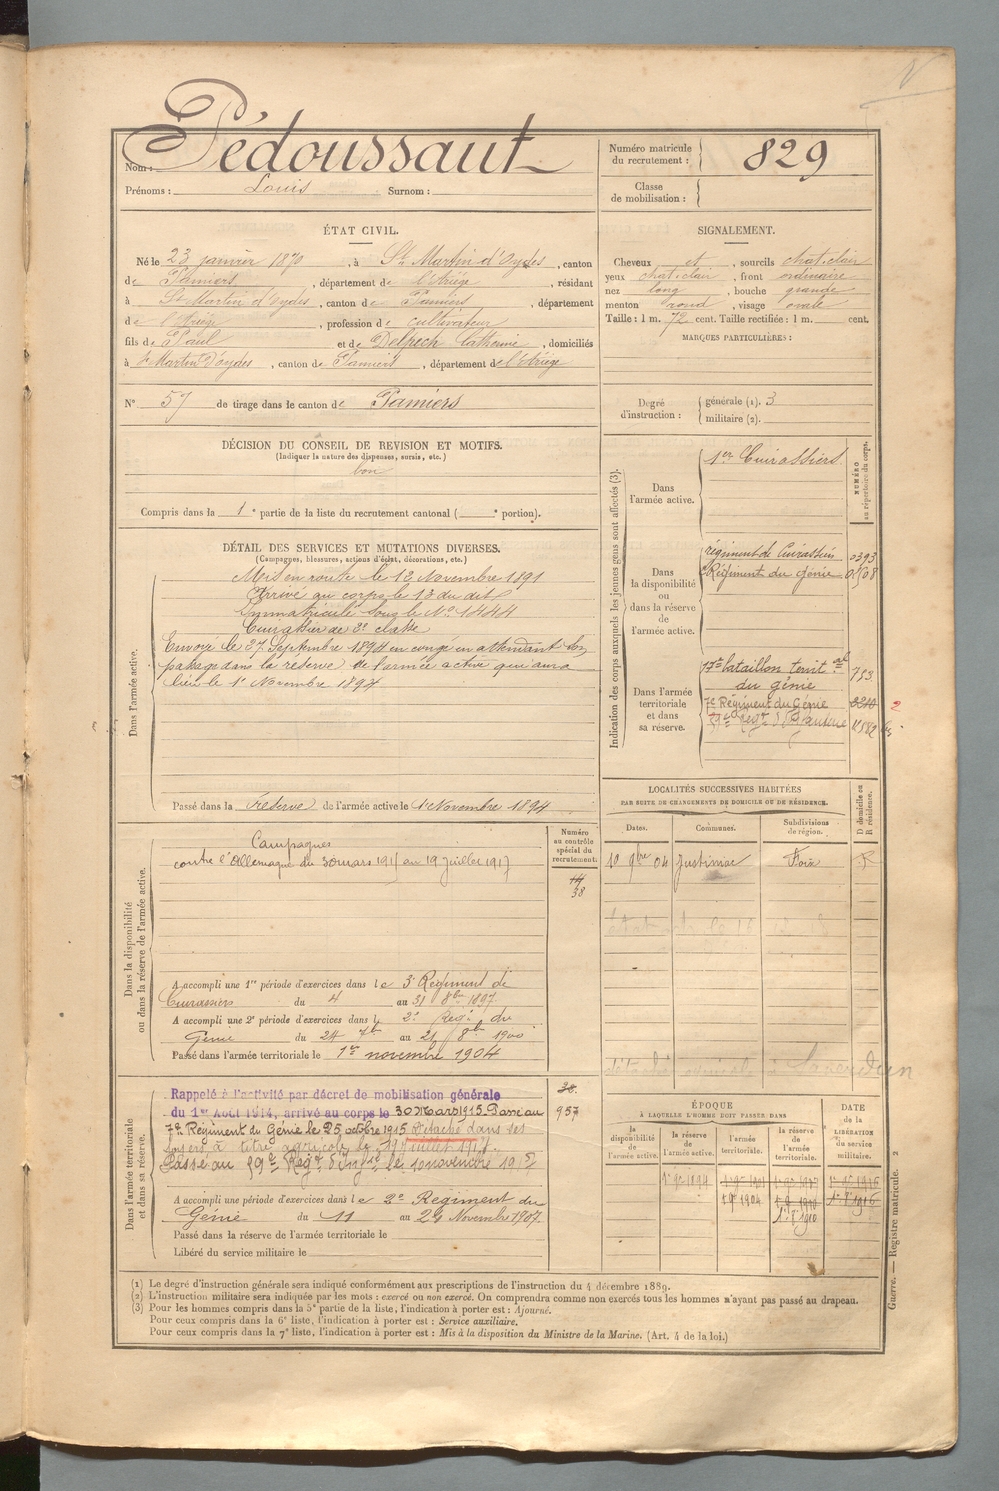 Nom : Pédoussaut
Prénoms : Louis Surnom :
Numéro matricule du recrutement : 829
Classe de mobilisation :
ÉTAT CIVIL.
Né le 23 janvier 1870, à St Martin d'Oydes, canton
de Pamiers, département de l'Ariège, résidant
à St Martin d'Oydes, canton de Pamiers, département
de l'Ariège, profession de cultivateur
fils de Paul et de Delpech Catherine, domiciliés
à St Martin d'oydes, canton de Pamiers, département de l'Ariège
N° 57 de tirage dans le canton de Pamiers
SIGNALEMENT.
Cheveux et, sourcils chat-clair
yeux chat-clair, front ordinaire
nez long, bouche grande
menton rond, visage ovale
Taille : 1 m. 72 cent. Taille rectifiée : 1 m. cent.
MARQUES PARTICULIÈRES :
Degré d'instruction : générale (1). 3
militaire (2).
DÉCISION DU CONSEIL DE REVISION ET MOTIFS.
(Indiquer la nature des dispenses, sursis, etc.)
bon
Compris dans la 1e partie de la liste du recrutement cantonal ( e portion).
DÉTAIL DES SERVICES ET MUTATIONS DIVERSES.
(Campagnes, blessures, actions d'éclat, décorations, etc.)
Dans l'armée active.
Mis en route le 12 Novembre 1891
Arrivé au corps le 13 du dit
Immatriculé sous le No 1444
Cuirassier de 2e classe
Envoyé le 27 Septembre 1894 en congé en attendant son
passage dans la réserve de l'armée active qui aura
lieu le 1er Novembre 1894
Passé dans la réserve de l'armée active le 1 Novembre 1894
Indication des corps auxquels les jeunes gens sont affectés (3).
NUMÉRO au répertoire du corps.
Dans l'armée active.
1er Cuirassiers
Dans la disponibilité ou dans la réserve de l'armée active.
régiment de Cuirassiers 0393
Régiment du génie
Dans l'armée territoriale et dans sa réserve.
17e bataillon territ.al 753
du génie
7e Régiment du Génie
LOCALITÉS SUCCESSIVES HABITÉES
PAR SUITE DE CHANGEMENTS DE DOMICILE OU DE RÉSIDENCE.
Dates. Communes. Subdivisions de région. D domicile ou R résidence.
10 9bre 04 Justiniac Foix R
détaché agricole à
Dans la disponibilité ou dans la réserve de l'armée active.
Numéro au contrôle spécial du recrutement.
Campagnes
contre l'Allemagne du 30 mars 1915 au 19 juillet 1917
38
A accompli une 1re période d'exercices dans le 3e Régiment de
Cuirassiers du 4 au 31 8bre 1897
A accompli une 2e période d'exercices dans le 2e Régt du
Génie du 24 7b au 21 8b 1900
Passé dans l'armée territoriale le 1er novembre 1904
Dans l'armée territoriale et dans sa réserve.
Rappelé à l'activité par décret de mobilisation générale
du 1er Août 1914, arrivé au corps le 30 Mars 1915. Passé au
957
7e Régiment du Génie le 25 octobre 1915 Détaché dans ses
foyers à titre agricole le 19 juillet 1917.
Passé au Regt d'Infie le 10 novembre
A accompli une période d'exercices dans le 2e Regiment du
Génie du 11 au Novembre 1907.
Passé dans la réserve de l'armée territoriale le
Libéré du service militaire le
ÉPOQUE
À LAQUELLE L'HOMME DOIT PASSER DANS
la disponibilité de l'armée active. la réserve de l'armée active. l'armée territoriale. la réserve de l'armée territoriale.
DATE de la LIBÉRATION du service militaire.
1er 9e 1894 1er 9e 1904
(1) Le degré d'instruction générale sera indiqué conformément aux prescriptions de l'instruction du 4 décembre 1889.
(2) L'instruction militaire sera indiquée par les mots : exercé ou non exercé. On comprendra comme non exercés tous les hommes n'ayant pas passé au drapeau.
(3) Pour les hommes compris dans la 5e partie de la liste, l'indication à porter est : Ajourné.
Pour ceux compris dans la 6e liste, l'indication à porter est : Service auxiliaire.
Pour ceux compris dans la 7e liste, l'indication à porter est : Mis à la disposition du Ministre de la Marine. (Art. 4 de la loi.)
Guerre. — Registre matricule. 2